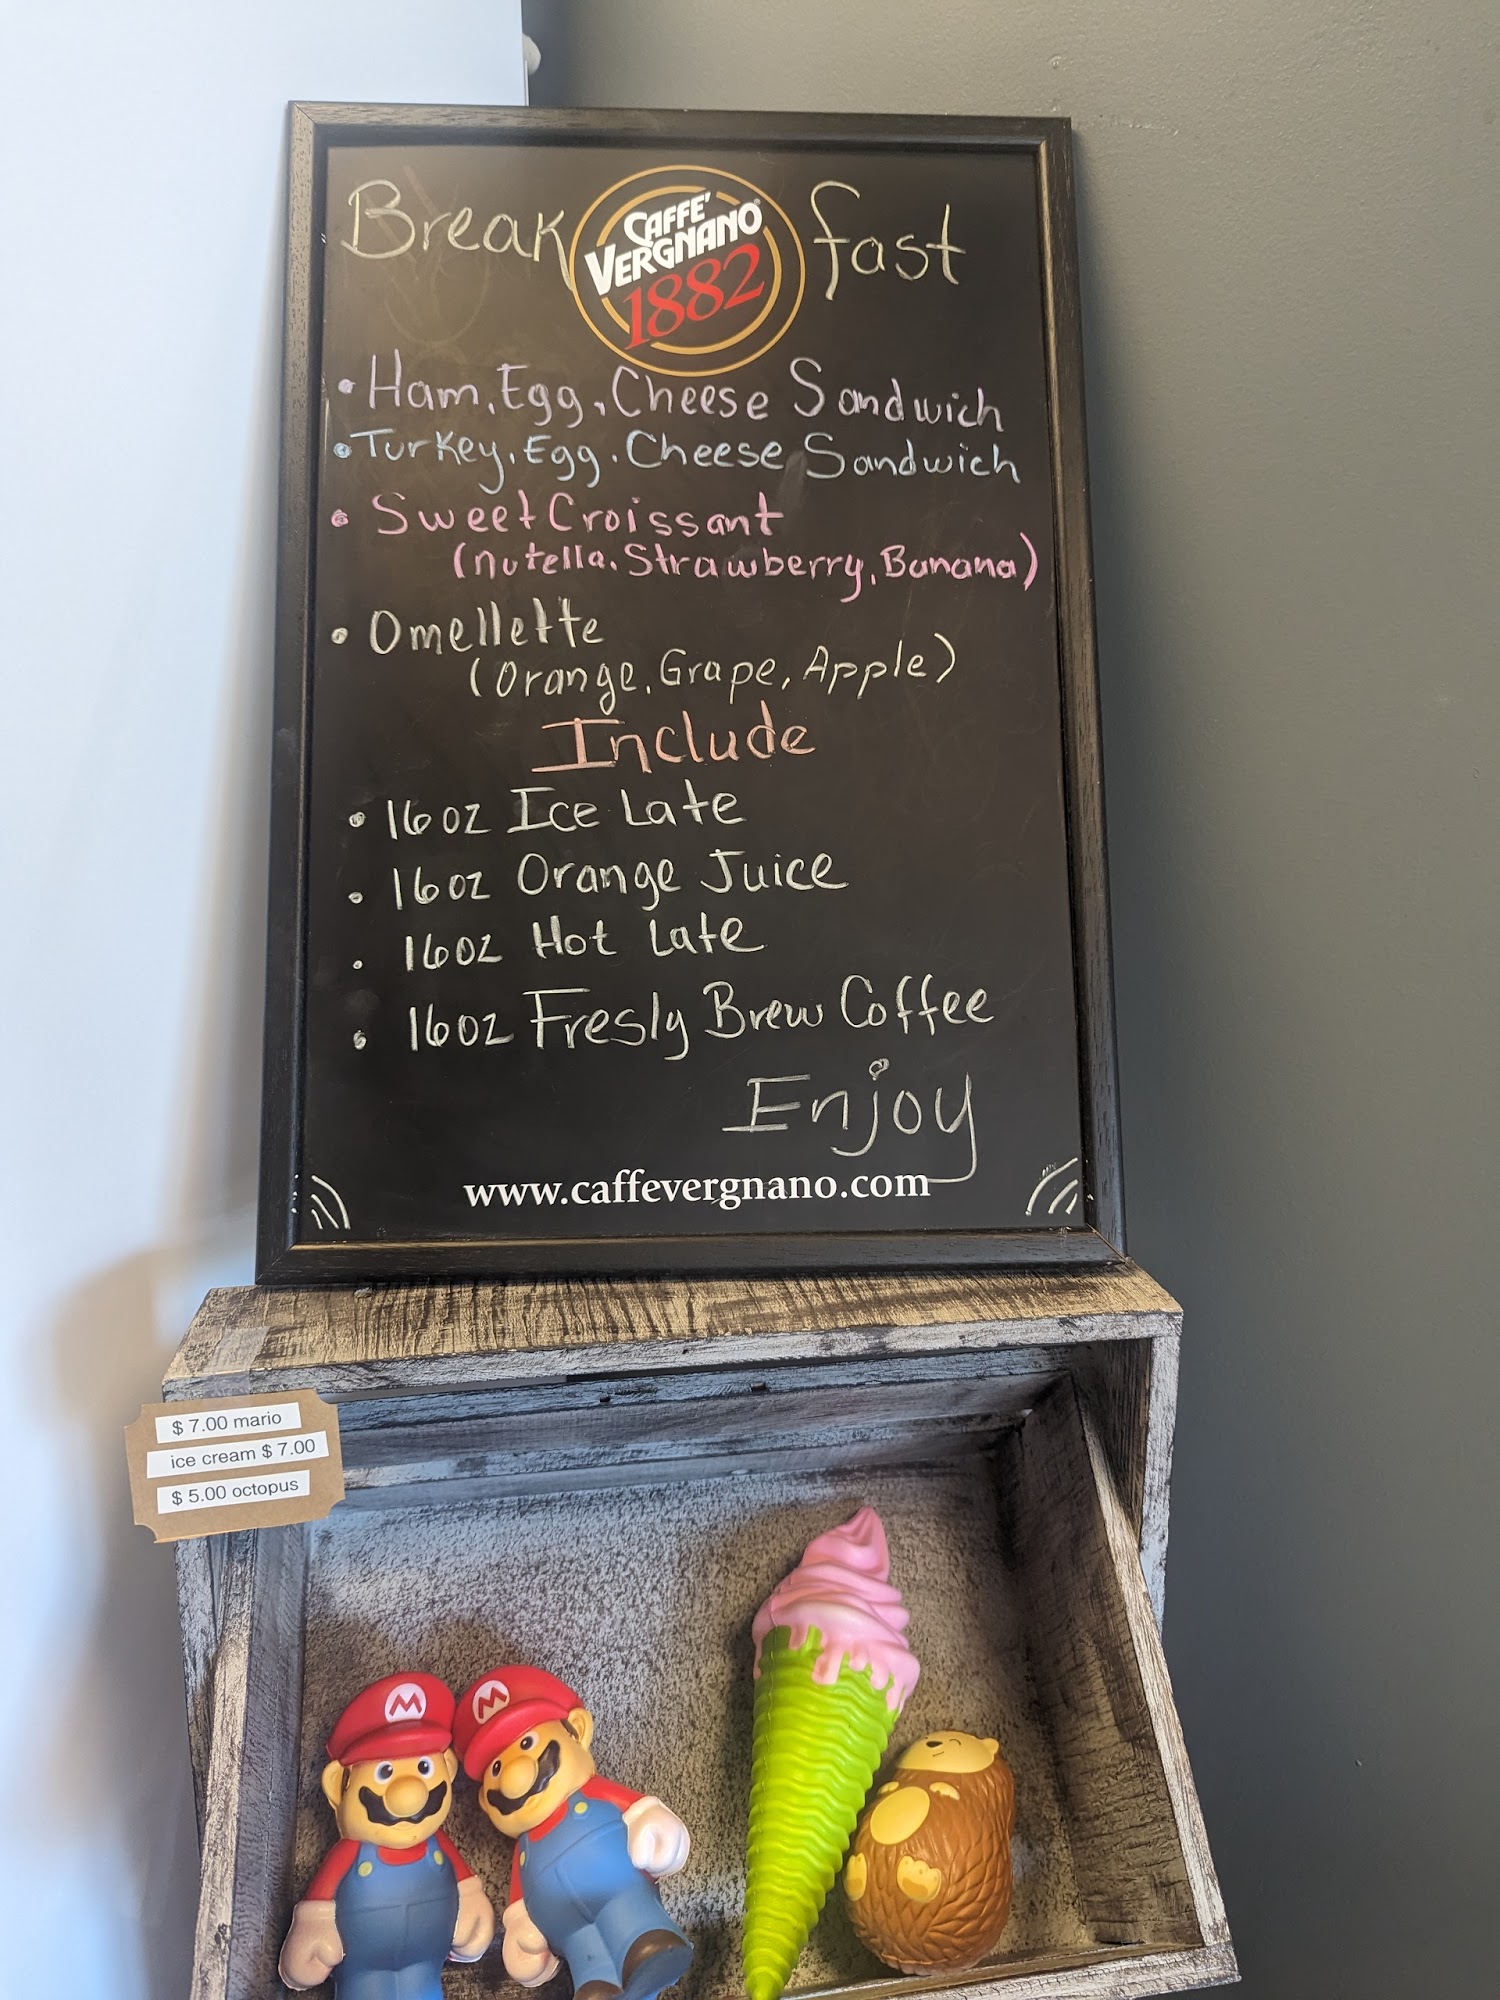 Break fast
CAFFE'
VERGNANO
1882
• Ham, Egg, Cheese Sandwich
• Turkey, Egg, Cheese Sandwich
• Sweet Croissant
(Nutella, Strawberry, Banana)
• Omellette
(Orange, Grape, Apple)
Include
• 16oz Ice Late
• 16oz Orange Juice
• 16oz Hot Late
• 16oz Fresly Brew Coffee
Enjoy
www.caffevergnano.com
$ 7.00 mario
ice cream $ 7.00
$ 5.00 octopus
M
M